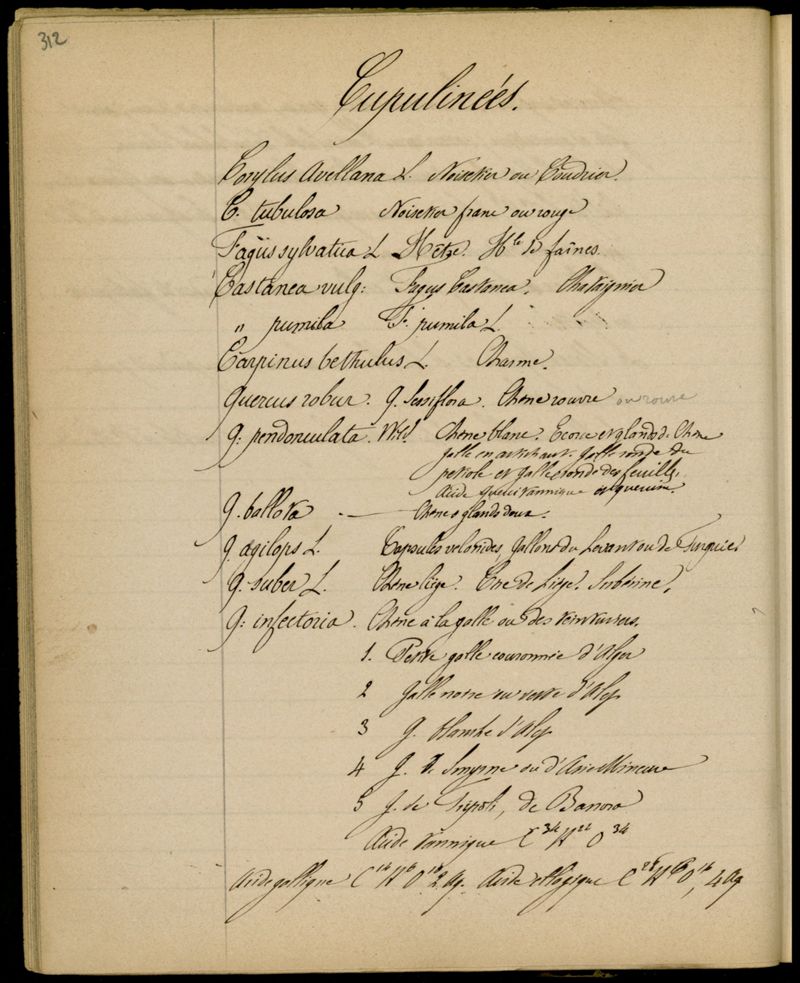 312
Cupulinées.
Corylus Avellana L. Noisetier ou Coudrier.
C. tubulosa Noisetier franc ou rouge
Fagus sylvatica L. Hêtre. Hle de faînes.
Castanea vulg: Fagus Castanea. Chataignier
" pumila F. pumila L.
Carpinus bethulus L. Charme.
Quercus robur. Q. Sessiflora. Chêne rouvre ou rouvre
Q. pendonculata. Wild Chêne blanc. Ecorce et glands de Chêne
galle en artichaut. galle ronde du
petiole et galle ronde des feuilles.
Acide quercitannique et quercine.
Q. ballota — Chêne à glands doux.
Q. ægilops L. Capsules velonides, gallons du Levant ou de Turquie.
Q. suber L. Chêne liège. Cire de Liège. Subérine.
Q. infectoria. Chêne à la galle ou des teinturiers.
1. Petite galle couronnée d'Alep
2 galle noire ou verte d'Alep
3 g. blanche d'Alep
4 g. de Smyrne ou d'Asie Mineure
5 g. de Tripoli, de
Acide tannique C34 H22 O34
Acide gallique C14 H6 O10 2 Aq. Acide ellagique C28 H6 O16, 4 Aq